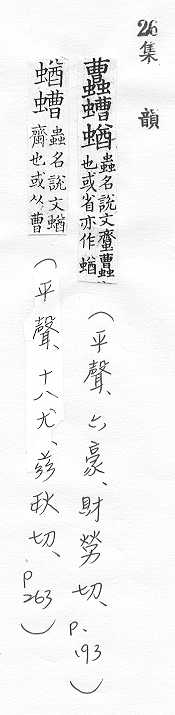 26集韻
𧓏螬蝤蟲名說文齏𧓏也或省亦作蝤
(平聲、六豪、財勞切、P.193)
蝤螬蟲名說文蝤齏也或从曹
(平聲、十八尤、茲秋切、P263)